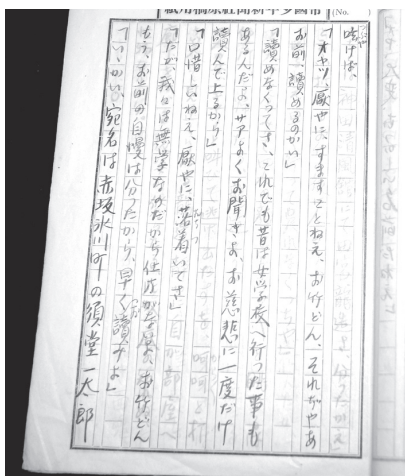 呟けば、
「オヤツ、厭やに、すますことねえ、お竹どん、それぢやあ
お前、讀めるのかい」
「讀めなくつてさ、これでも昔は女学校へ行つた事も
あるんだよ、サアよくお聞きよ、お慈悲に一度だけ
讀んで上るから」
「口惜しいねえ、厭やに、落着いてさ」
「だが、我々は無学なんだから仕方がない、お竹どん
もう、お前の自慢は分つたから、早く讀みよ」
「いゝかい、宛名は赤坂氷川町の須堂一太郎